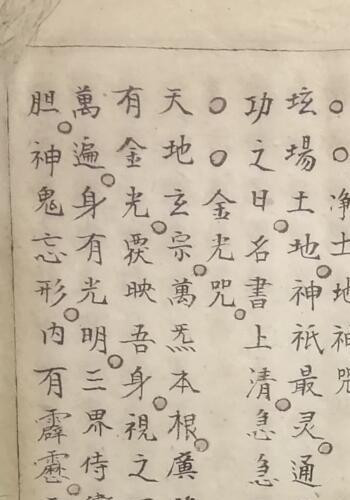 ○○净土地神咒
坛場土地。神祇最灵。通
功之日。名書上清。急急
○○金光咒。
天地玄宗。萬炁本根。廣
有金光。覆映吾身。視之
萬遍。身有光明。三界侍衛
胆。神鬼忘形。內有霹靂